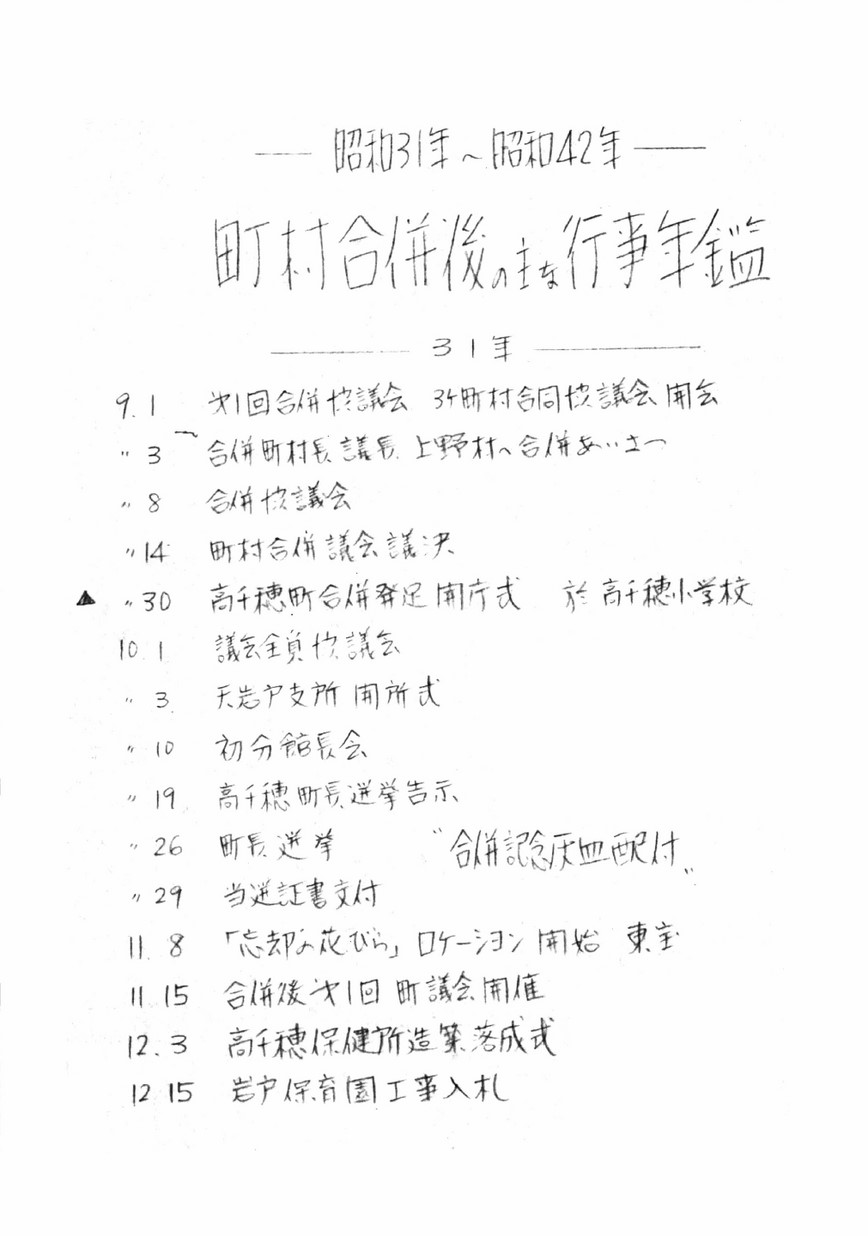 ― 昭和31年～昭和42年 ―
町村合併後の主な行事年鑑
― 31年 ―
9.1 才1回合併協議会 3ケ町村合同協議会開会
〃 3 合併町村長議長上野村へ合併あいさつ
〃 8 合併協議会
〃 14 町村合併議会議決
▲ 〃 30 高千穂町合併発足開庁式 於高千穂小学校
10 1 議会全員協議会
〃 3 天岩戸支所開所式
〃 10 初分館長会
〃 19 高千穂町長選挙告示
〃 26 町長選挙 〝合併記念灰皿配付〟
〃 29 当選証書交付
11. 8 「忘却の花びら」ロケーション開始 東宝
11.15 合併後才1回町議会開催
12.3 高千穂保健所造築落成式
12 15 岩戸保育園工事入札